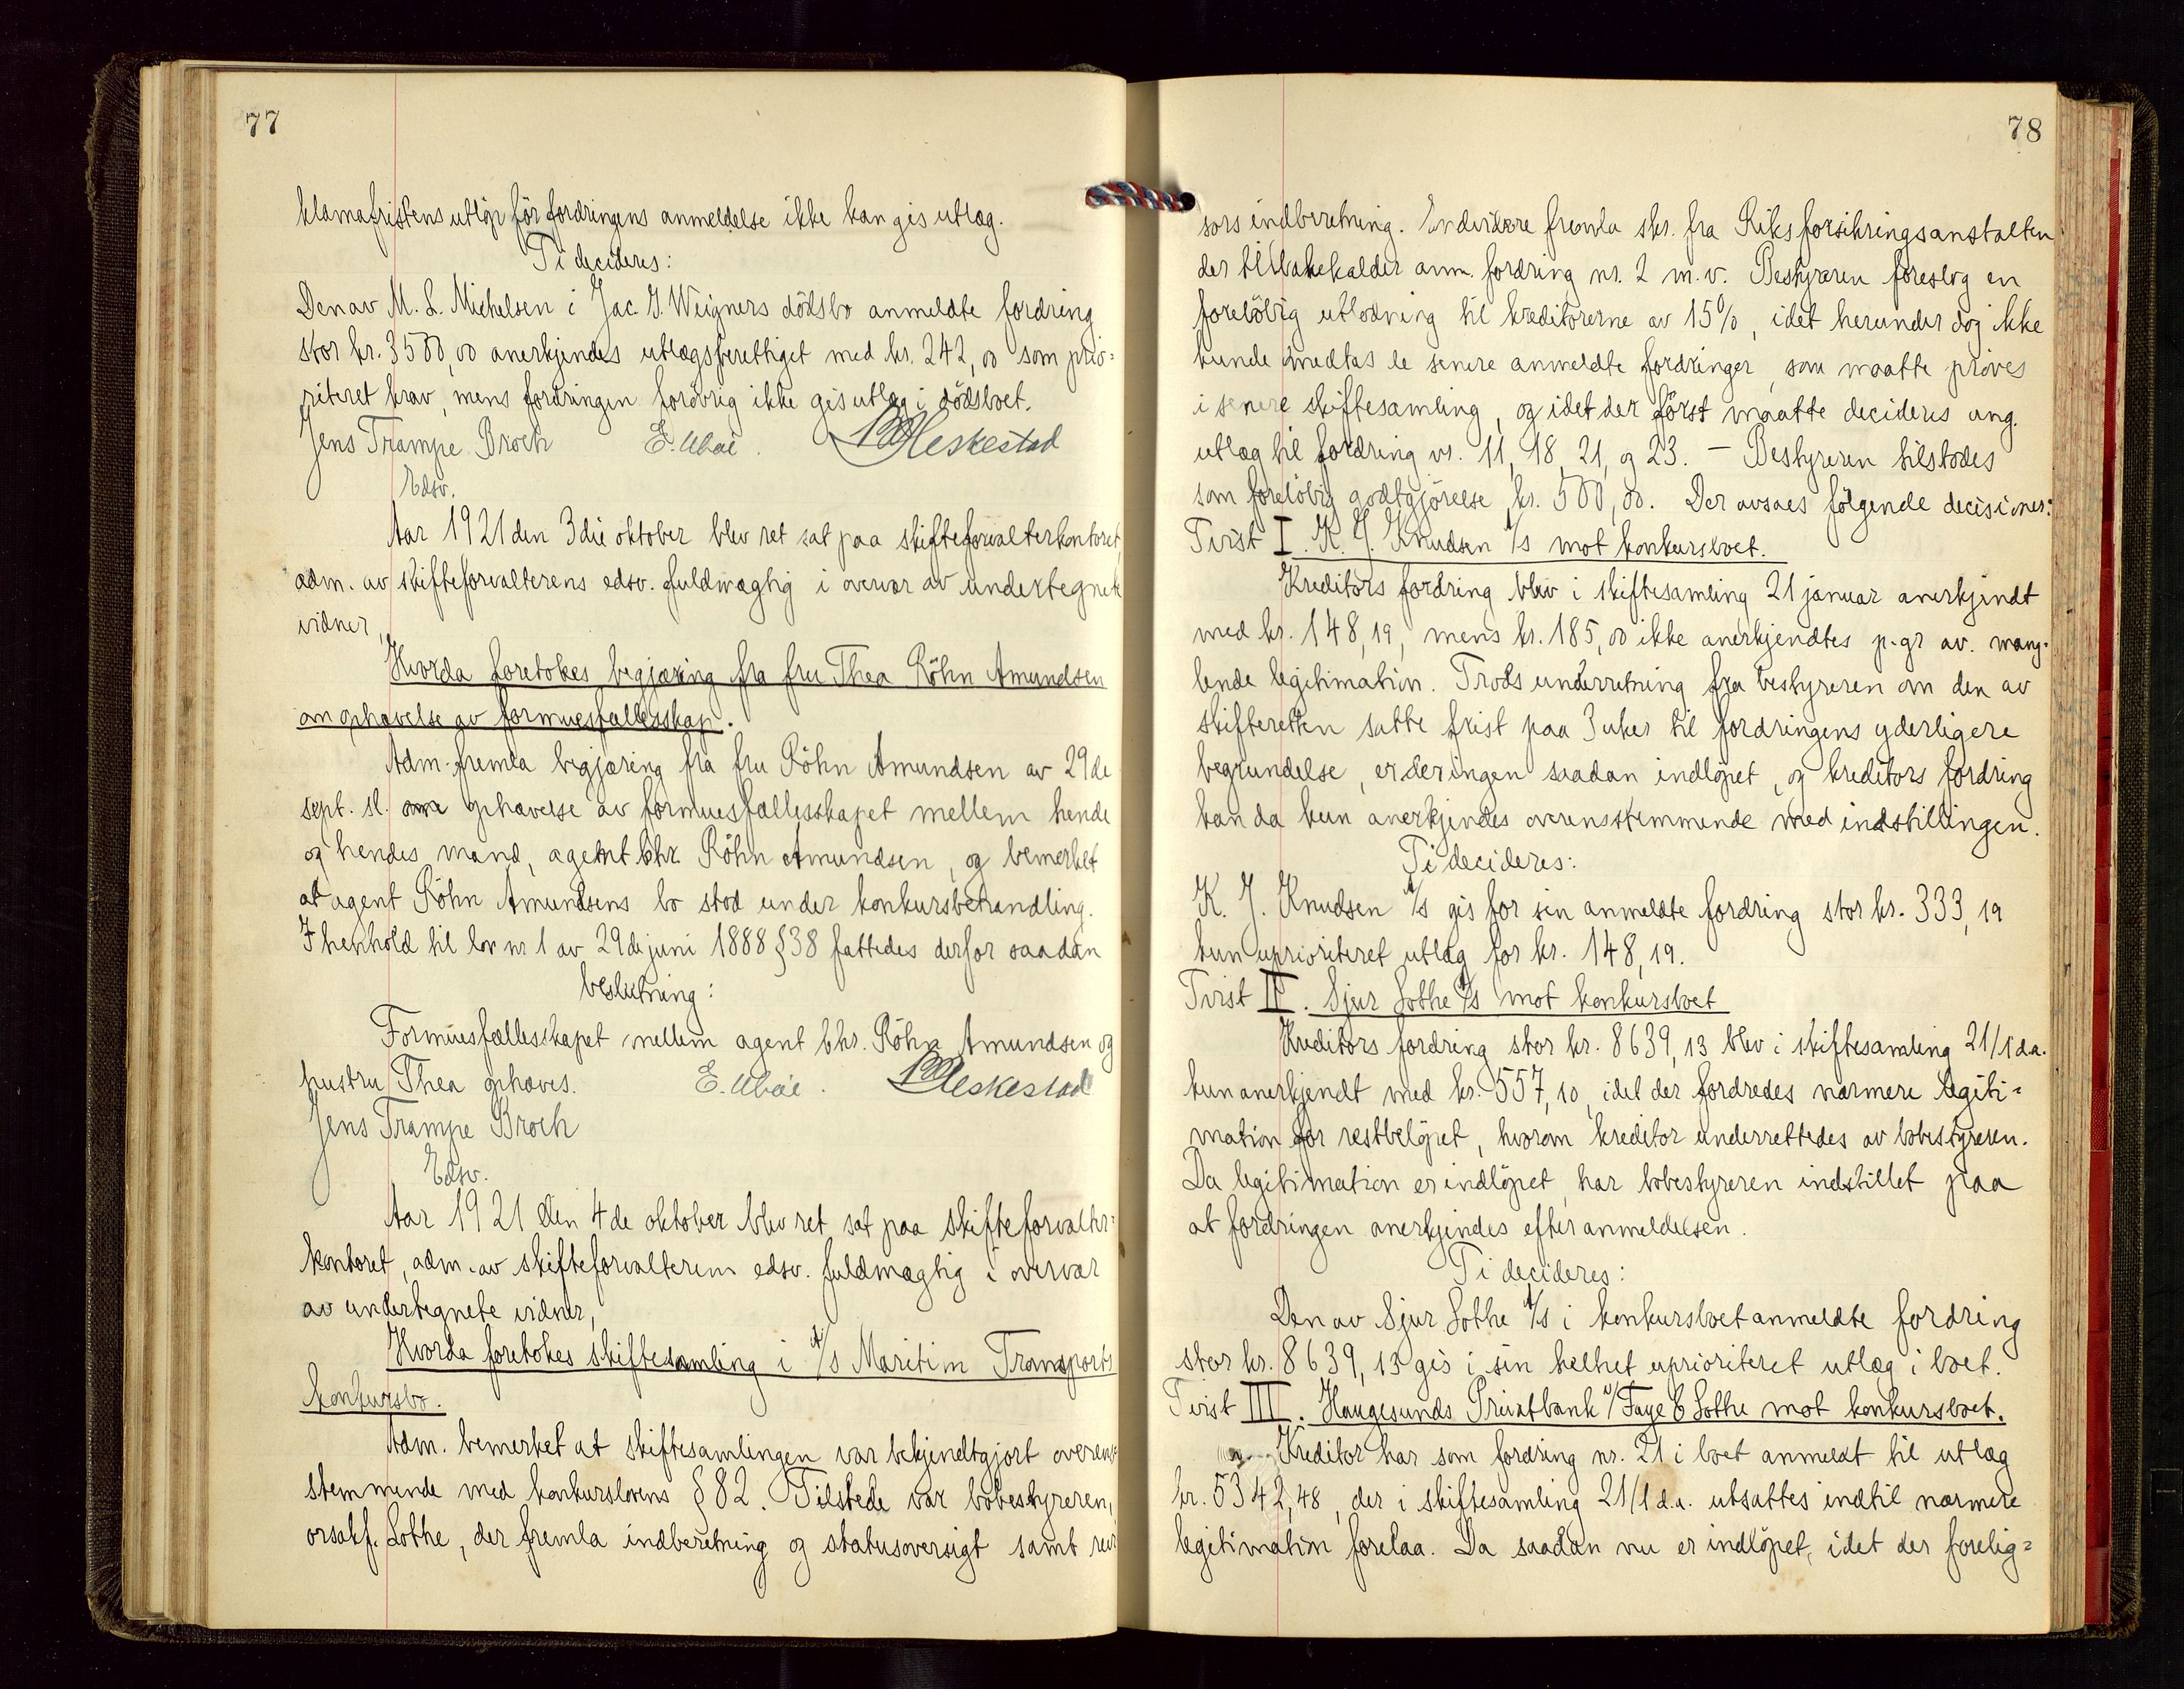 77
klamafristens utløp før fordringens anmeldelse ikke kan gis utlæg.
Ti decideres:
Den av M. L. Michelsen i Jac. J. Weigners dödsbo anmeldte fordring
stor kr. 3500,00 anerkjendes utlægsberettiget med kr. 242,00 som prio-
riteret krav, mens fordringen forövrig ikke gis utlæg i dödsboet.
Jens Trampe Broch E. Ubøe. Heskestad
Edsv.
Aar 1921 den 3die oktober blev ret sat paa skifteforvalterkontoret
adm. av skifteforvalterens edsv. fuldmægtig i overvær av undertegnete
vidner,
Hvorda foretokes begjæring fra fru Thea Röhn Amundsen
om ophævelse av formuesfællesskap.
Adm. fremla begjæring fra fru Röhn Amundsen av 29de
sept. sl. om ophævelse av formuesfællesskapet mellem hende
og hendes mand, agent Chr. Röhn Amundsen, og bemerket
at agent Röhn Amundsens bo stod under konkursbehandling.
I henhold til lov nr 1 av 29de juni 1888 § 38 fattedes derfor saadan
beslutning:
Formuesfællesskapet mellem agent Chr. Röhn Amundsen og
hustru Thea ophæves. E. Ubøe. Heskestad
Jens Trampe Broch
Edsv.
Aar 1921 den 4de oktober blev ret sat paa skifteforvalter-
kontoret, adm. av skifteforvalterens edsv. fuldmægtig i overvær
av undertegnete vidner,
Hvorda foretokes skiftesamling i A/S Maritim Transports
konkursbo.
Adm. bemerket at skiftesamlingen var bekjendtgjort overens-
stemmende med konkurslovens § 82. Tilstede var bobestyreren,
orsakf. Lothe, der fremla indberetning og statusoversigt samt revi
78
sors indberetning. Endvidere fremla skr. fra Riksforsikringsanstalten
der tilbakekalder anm. fordring nr. 2 m.v. Bestyreren foreslog en
foreløbig utlodning til kreditorerne av 15%, idet herunder dog ikke
kunde medtas de senere anmeldte fordringer, som maatte pröves
i senere skiftesamling, og idet der först maatte decideres ang.
utlæg til fordring nr. 11, 18, 21, og 23. — Bestyreren tilstodes
som forelöbig godtgjörelse kr. 500,00. Der avsaes fölgende decisioner:
Tvist I. K. J. Knudsen A/S mot konkursboet.
Kreditors fordring blev i skiftesamling 21 januar anerkjendt
med kr. 148,19, mens kr. 185,00 ikke anerkjendtes p. gr av. mang-
lende legitimation. Trods underretning fra bestyreren om den av
skifteretten satte frist paa 3 uker til fordringens yderligere
begrundelse, er der ingen saadan indlöpet, og kreditors fordring
kan da kun anerkjendes overensstemmende med indstillingen.
Ti decideres:
K. J. Knudsen A/S gis for sin anmeldte fordring stor kr. 333,19
kun uprioriteret utlæg for kr. 148,19.
Tvist II. Sjur Lothe A/S mot konkursboet
Kreditors fordring stor kr. 8639,13 blev i skiftesamling 21/1 d.a.
kun anerkjendt med kr. 557,10, idet der fordredes nærmere legiti-
mation for restbelöpet, hvorom kreditor underrettedes av bobestyreren.
Da legitimation er indlöpet, har bobestyreren indstillet paa
at fordringen anerkjendes efter anmeldelsen.
Ti decideres:
Den av Sjur Lothe A/S i konkursboet anmeldte fordring
stor kr. 8639,13 gis i sin helhet uprioriteret utlæg i boet.
Tvist III. Haugesunds Privatbank v/ Faye & Lothe mot konkursboet.
Kreditor har som fordring nr. 21 i boet anmeldt til utlæg
kr. 5342,48, der i skiftesamling 21/1 d.a. utsattes indtil nærmere
legitimation forelaa. Da saadan nu er indlöpet, idet der forelig-